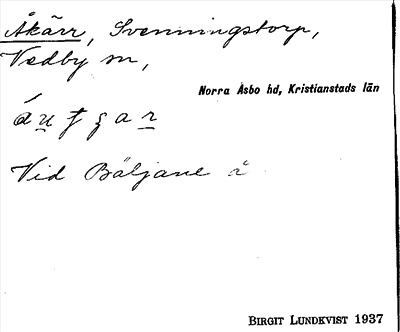 Åkärr, Svenningstorp,
Vedby sn,
Norra Åsbo hd, Kristianstads län
Vid Bäljane å
BIRGIT LUNDKVIST 1937